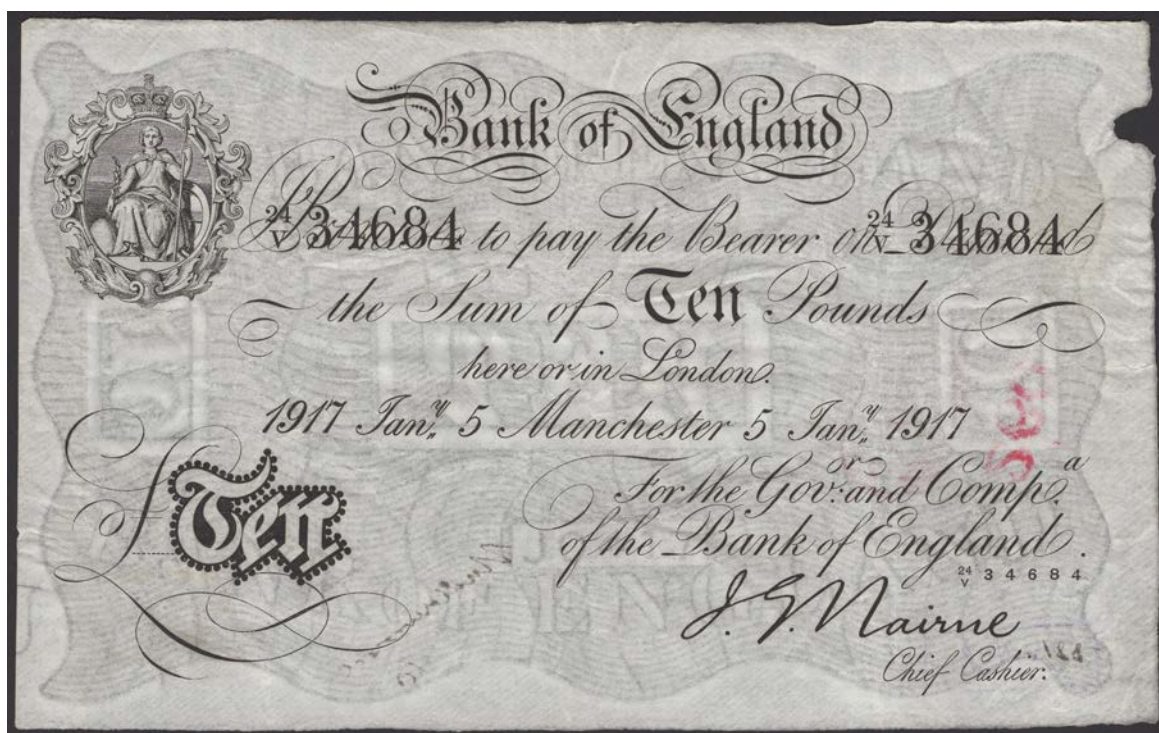 Bank of England
24/V 34684 to pay the Bearer on 24/V 34684
the Sum of Ten Pounds
here or in London.
1917 Jan.y 5 Manchester 5 Jan.y 1917
For the Gov.or and Comp.a
of the Bank of England.
£ Ten
24/V 34684
J. G. Nairne
Chief Cashier.